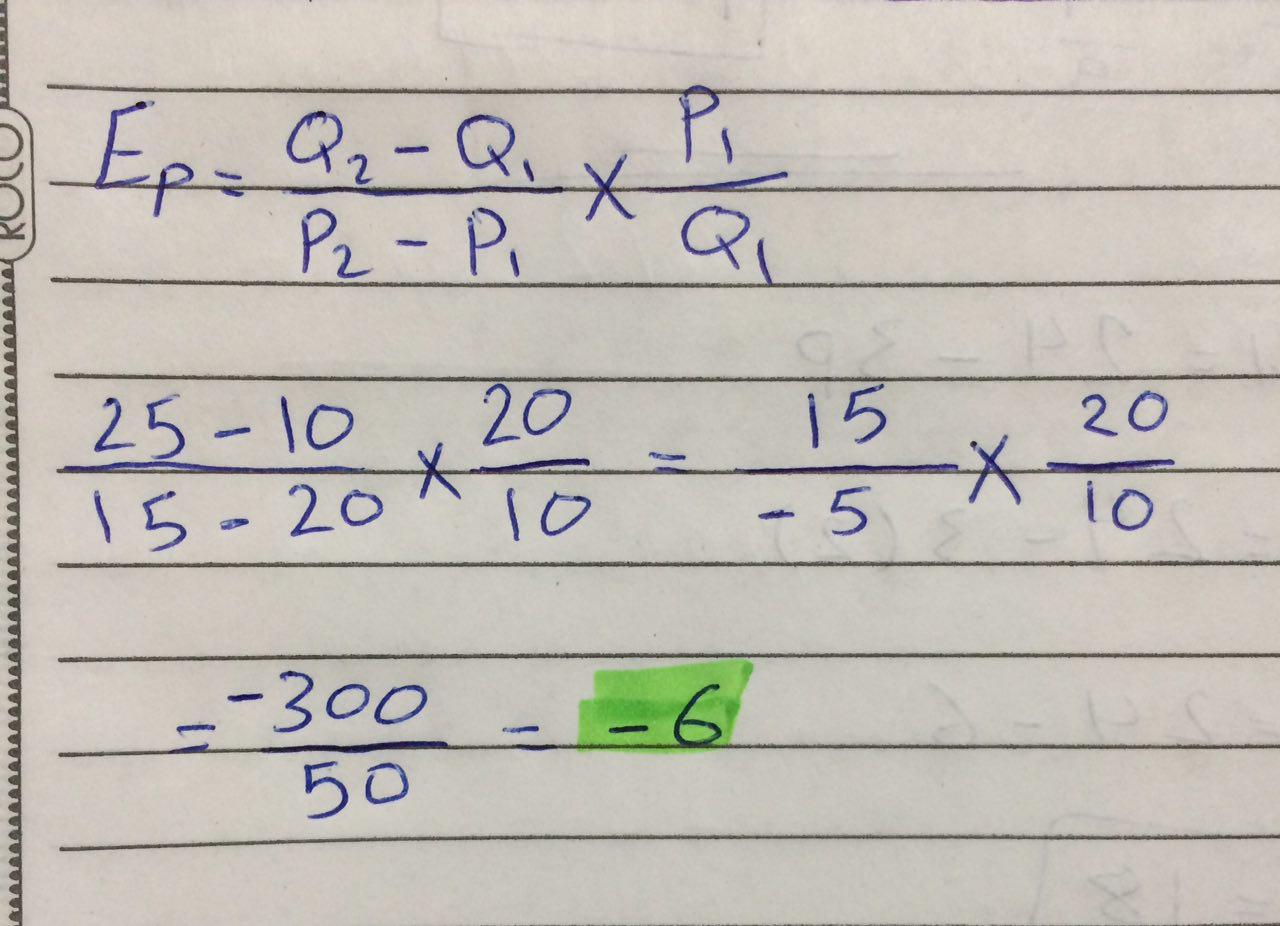 Ep = (Q₂ - Q₁)/(P₂ - P₁) × P₁/Q₁
(25 - 10)/(15 - 20) × 20/10 = 15/-5 × 20/10
= -300/50 = -6
ROCO